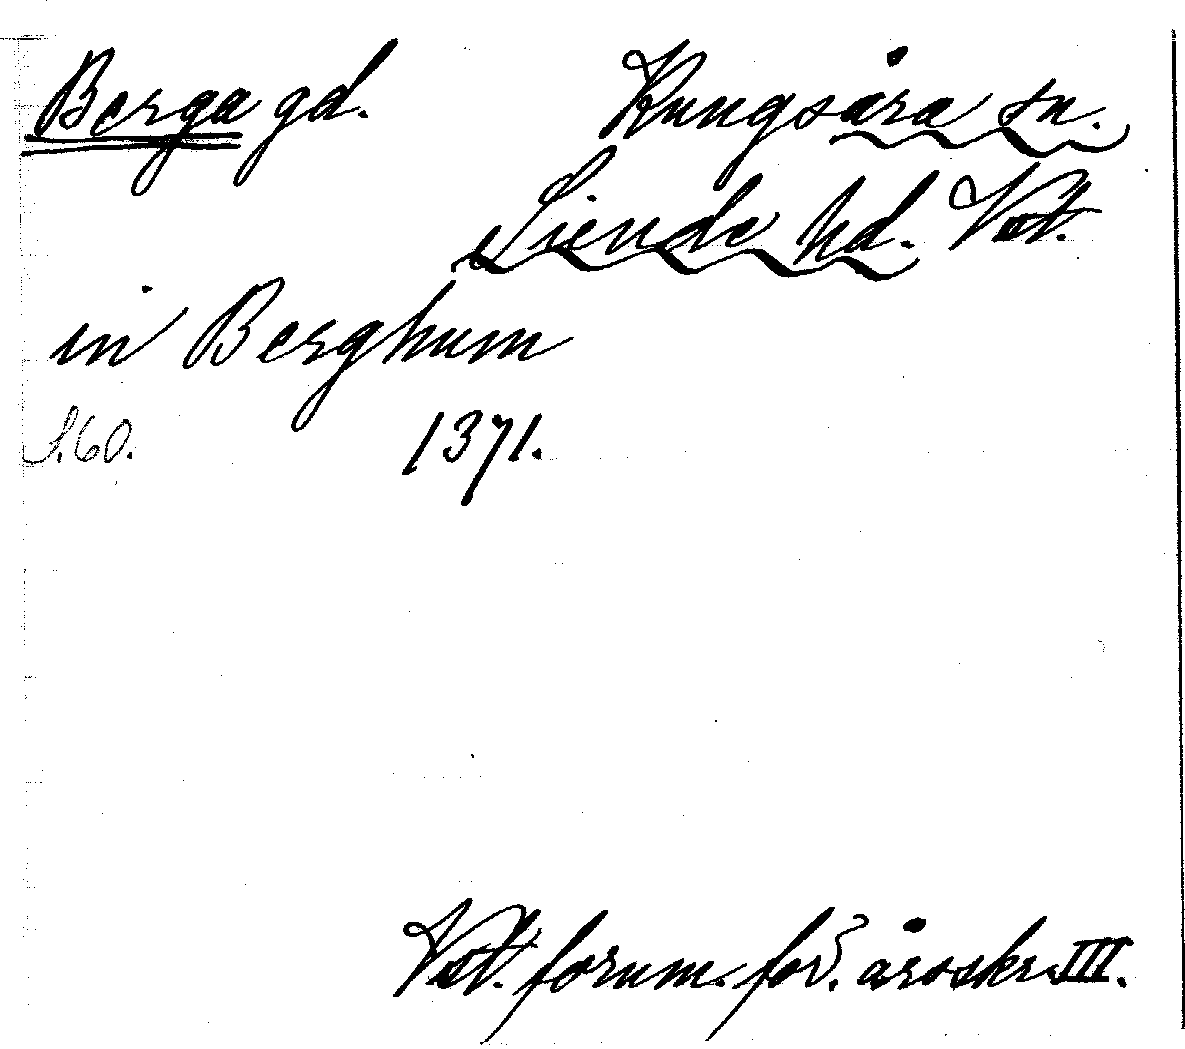 Berga gd. Kungsåra sn.
Siende hd. Vst.
in Berghum
S. 60. 1371.
Vst. fornm. för. årsskr. III.